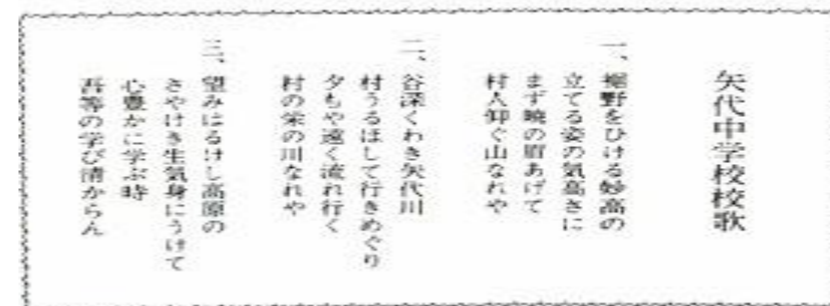 矢代中学校校歌
一、裾野をひける妙高の
立てる姿の気高さに
まず暁の眉あげて
村人仰ぐ山なれや
二、谷深くわき矢代川
村うるほして行きめぐり
夕もや遠く流れ行く
村の栄の川なれや
三、望みはるけし高原の
さやけき生気身にうけて
心豊かに学ぶ時
吾等の学び清からん